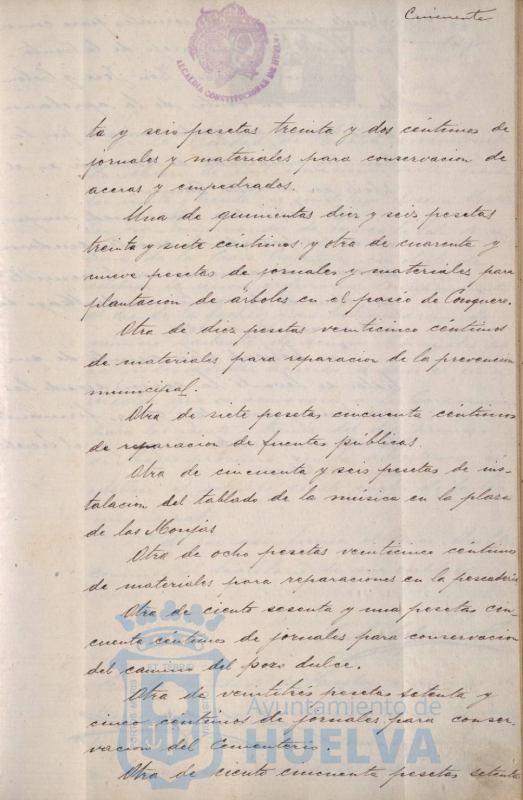 Cincuenta
ALCALDIA CONSTITUCIONAL DE HUELVA
ta y seis pesetas treinta y dos céntimos de
jornales y materiales para conservacion de
aceras y empedrados.
Una de quinientas diez y seis pesetas
treinta y siete céntimos y otra de cuarenta y
nueve pesetas de jornales y materiales para
plantacion de árboles en el paseo de Conquero.
Otra de diez pesetas veinticinco céntimos
de materiales para reparacion de la prevencion
municipal.
Otra de siete pesetas cincuenta céntimos
de reparacion de fuentes públicas.
Otra de cincuenta y seis pesetas de ins-
talacion del tablado de la música en la plaza
de las Monjas
Otra de ocho pesetas veinticinco céntimos
de materiales para reparaciones en la pescaderia
Otra de ciento sesenta y una pesetas cin-
cuenta céntimos de jornales para conservacion
del camino del pozo dulce.
Otra de veintitrés pesetas setenta y
cinco céntimos de jornales para conser-
vacion del Cementerio.
Otra de ciento cincuenta pesetas setenta
Ayuntamiento de
HUELVA